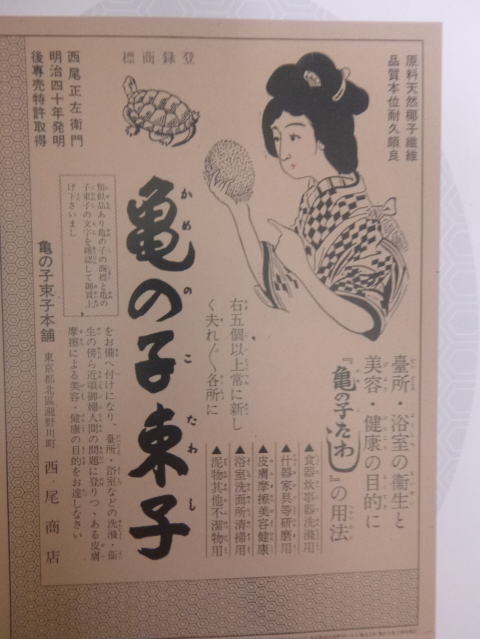 原料天然椰子纖維
品質本位耐久頗良
登錄商標
西尾正左衛門
明治四十年発明
後專売特許取得
臺所・浴室の衞生と
美容・健康の目的に
『亀の子たわし』の用法
▲食器炊事器洗滌用
▲什器家具等研磨用
▲皮膚摩擦美容健康
▲浴室洗面所清掃用
▲泥物其他不潔物用
右五個以上常に新し
く夫れ〱各所に
亀の子束子
かめのこたわし
類似品あり亀の子の商標と亀の
子束子の文字を確認して御買上
げ下さいまし
をお備へ付けになり、臺所・浴室などの洗滌・衞
生の傍ら近頃御婦人間の問題に登りつゝある皮膚
摩擦による美容・健康の目的をお達しなさい
亀の子束子本舗 東京都北區瀧野川町 西尾商店